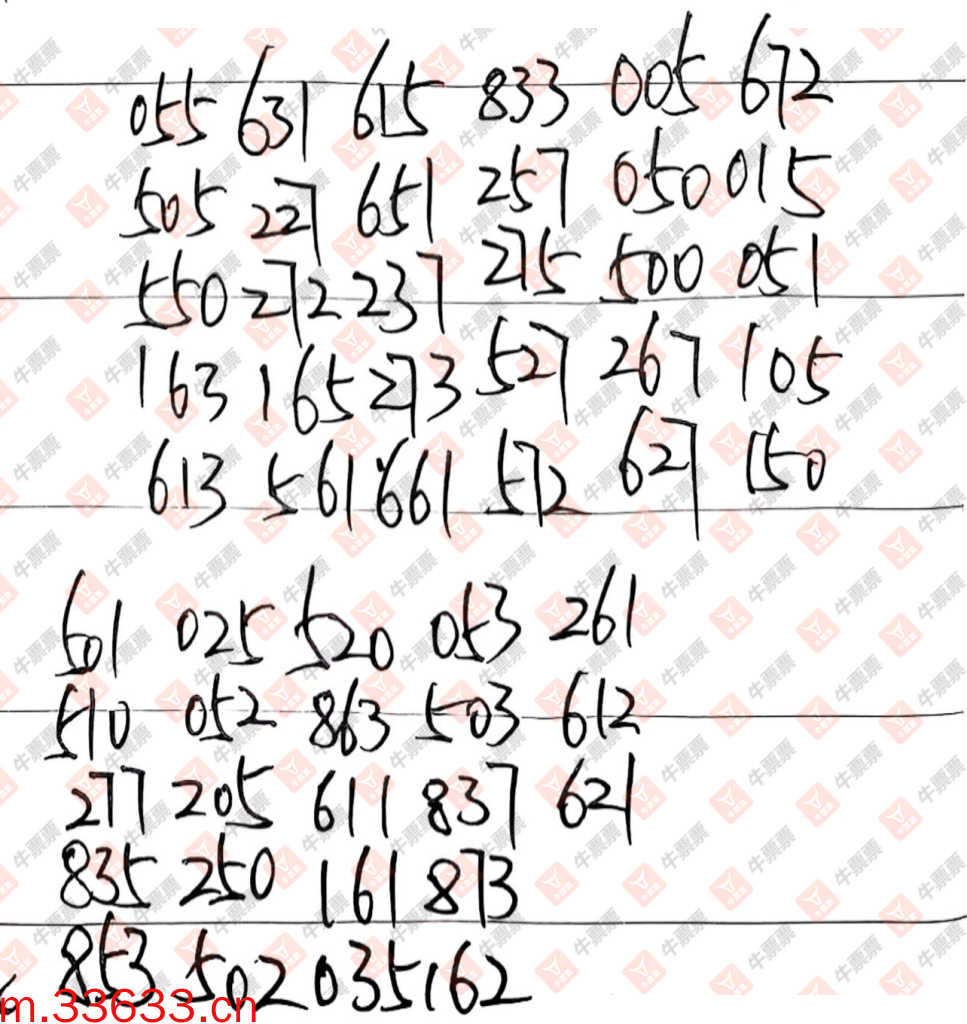 055 631 615 833 005 672
505 227 651 257 050 015
550 272 237 275 500 051
163 165 273 527 267 105
613 561 661 572 627 150
501 025 520 053 261
510 052 863 503 612
277 205 611 837 621
835 250 161 873
853 502 035 162
m.33633.cn
牛票票